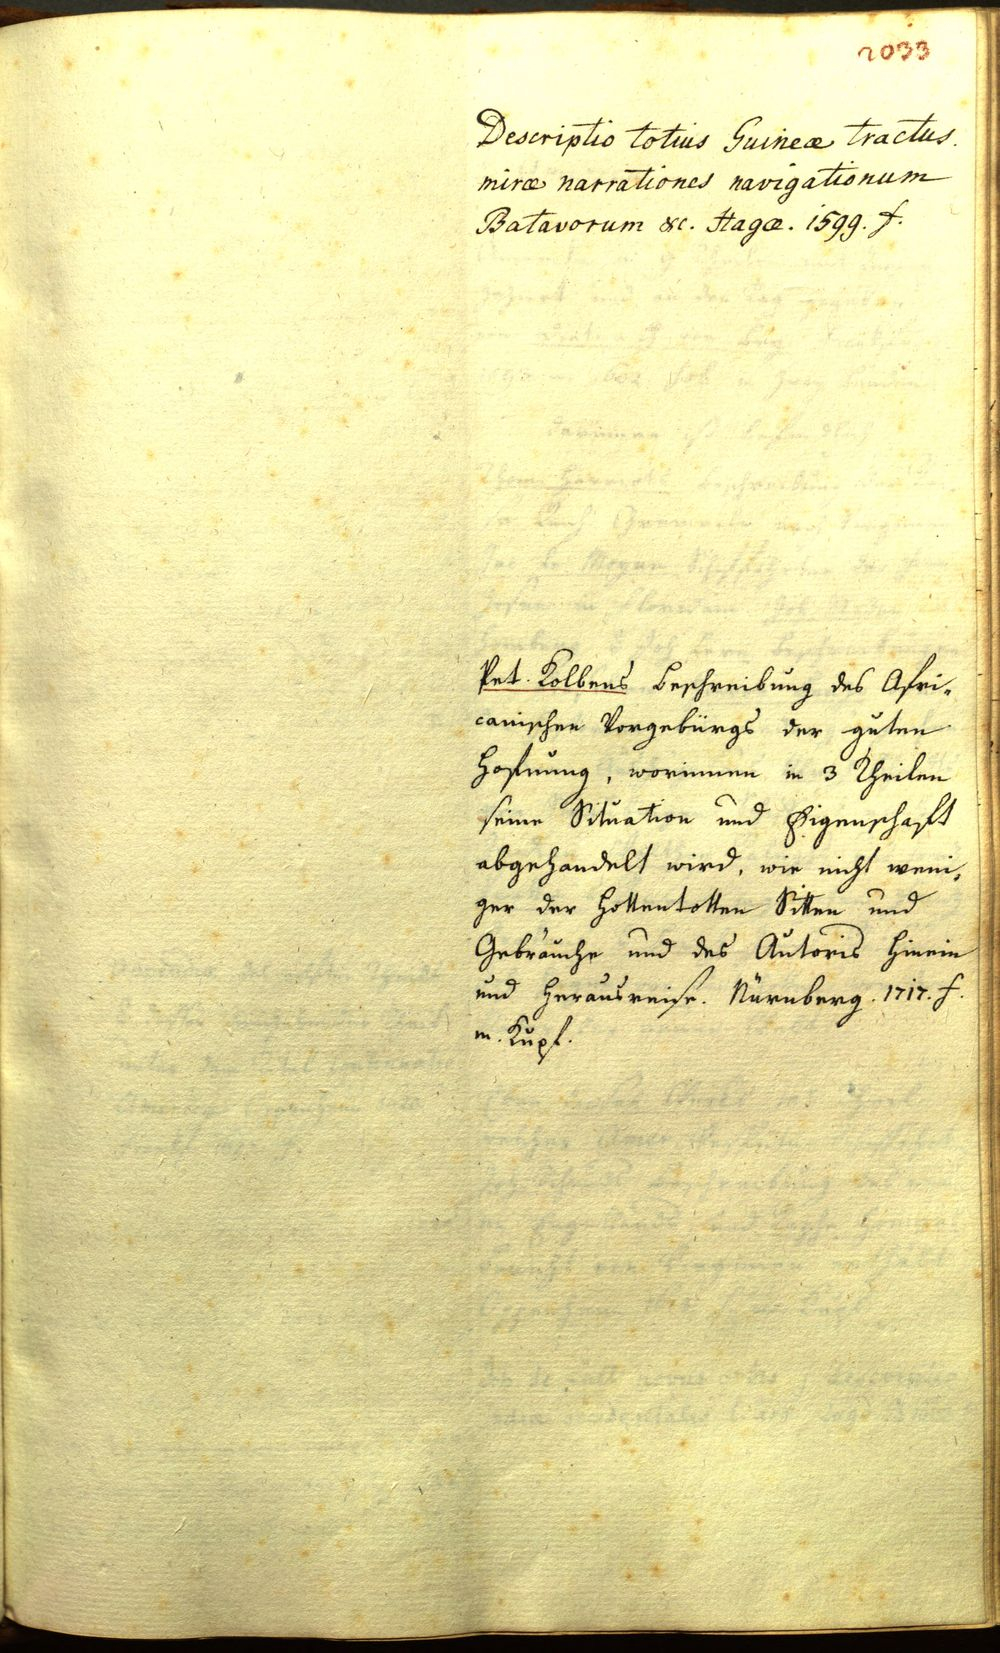 2033
Descriptio totius Guineæ tractus.
miræ narrationes navigationum
Batavorum &c. Hagæ. 1599. f.
Pet. Kolbens Beschreibung des Afri-
canischen Vorgebürgs der guten
Hofnung, worinnen in 3 Theilen
seine Situation und Eigenschaft
abgehandelt wird, wie nicht weni-
ger der Hottentotten Sitten und
Gebräuche und des Autoris hinein
und herausreise. Nürnberg. 1717. f.
m. Kupf.